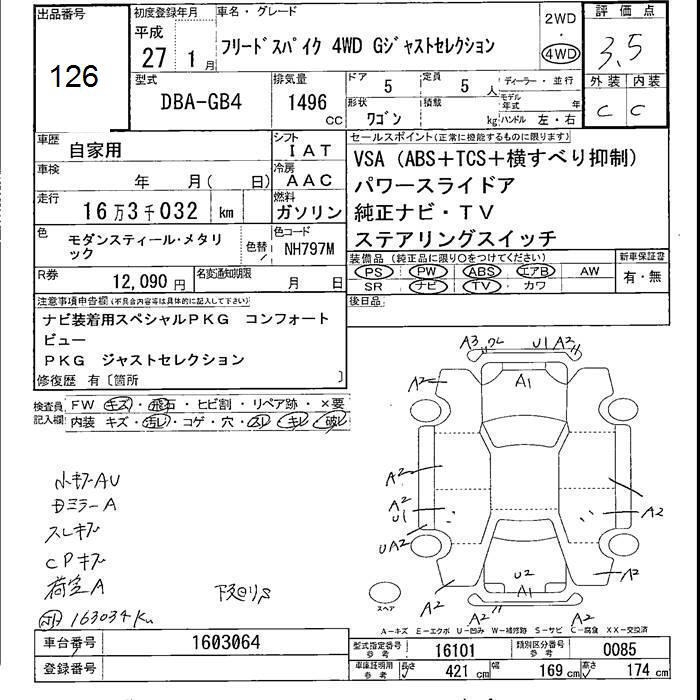 出品番号
126
初度登録年月
平成
27 年 1 月
車名・グレード
フリードスパイク 4WD Gジャストセレクション
2WD
・
4WD
評価点
3.5
外装 内装
C C
型式
DBA-GB4
排気量
1496 CC
ドア 5
定員 5 人
ディーラー・並行
形状 ワゴン
積載 kg
モデル年式 年
ハンドル 左・右
車歴 自家用
シフト IAT
車検 年 月( 日)
冷房 AAC
走行 16万3千032 km
燃料 ガソリン
色 モダンスティール・メタリック
色替
色コード NH797M
R券 12,090 円
名変通知期限 月 日
セールスポイント(正常に機能するものに限ります)
VSA(ABS+TCS+横すべり抑制)
パワースライドア
純正ナビ・TV
ステアリングスイッチ
装備品(純正品に限り○をつけてください)
新車保証書
PS PW ABS エアB AW
有・無
SR ナビ TV カワ
後日品
注意事項申告欄(不具合内容等は具体的に記入して下さい)
ナビ装着用スペシャルPKG コンフォート
ビュー
PKG ジャストセレクション
修復歴 有〔箇所 〕
検査員記入欄
FW キズ・飛石・ヒビ割・リペア跡・×要
内装 キズ・汚レ・コゲ・穴・スレ・キレ・破レ
A3 U1 A2
A2 A1 A2
A2
A2
U1
A2
UA2
U2
A1
A2
A2
A2
A2
小キズAU
Dミラー A
スレキズ
CPキズ
荷室A
下廻りS
163034 Km
スペア
A-キズ E-エクボ U-凹み W-補修跡 S-サビ C-腐食 XX-交換済
車台番号 1603064
登録番号
型式指定番号 参考 16101
類別区分番号 参考 0085
車庫証明用 参考
長さ 421 cm
幅 169 cm
高さ 174 cm